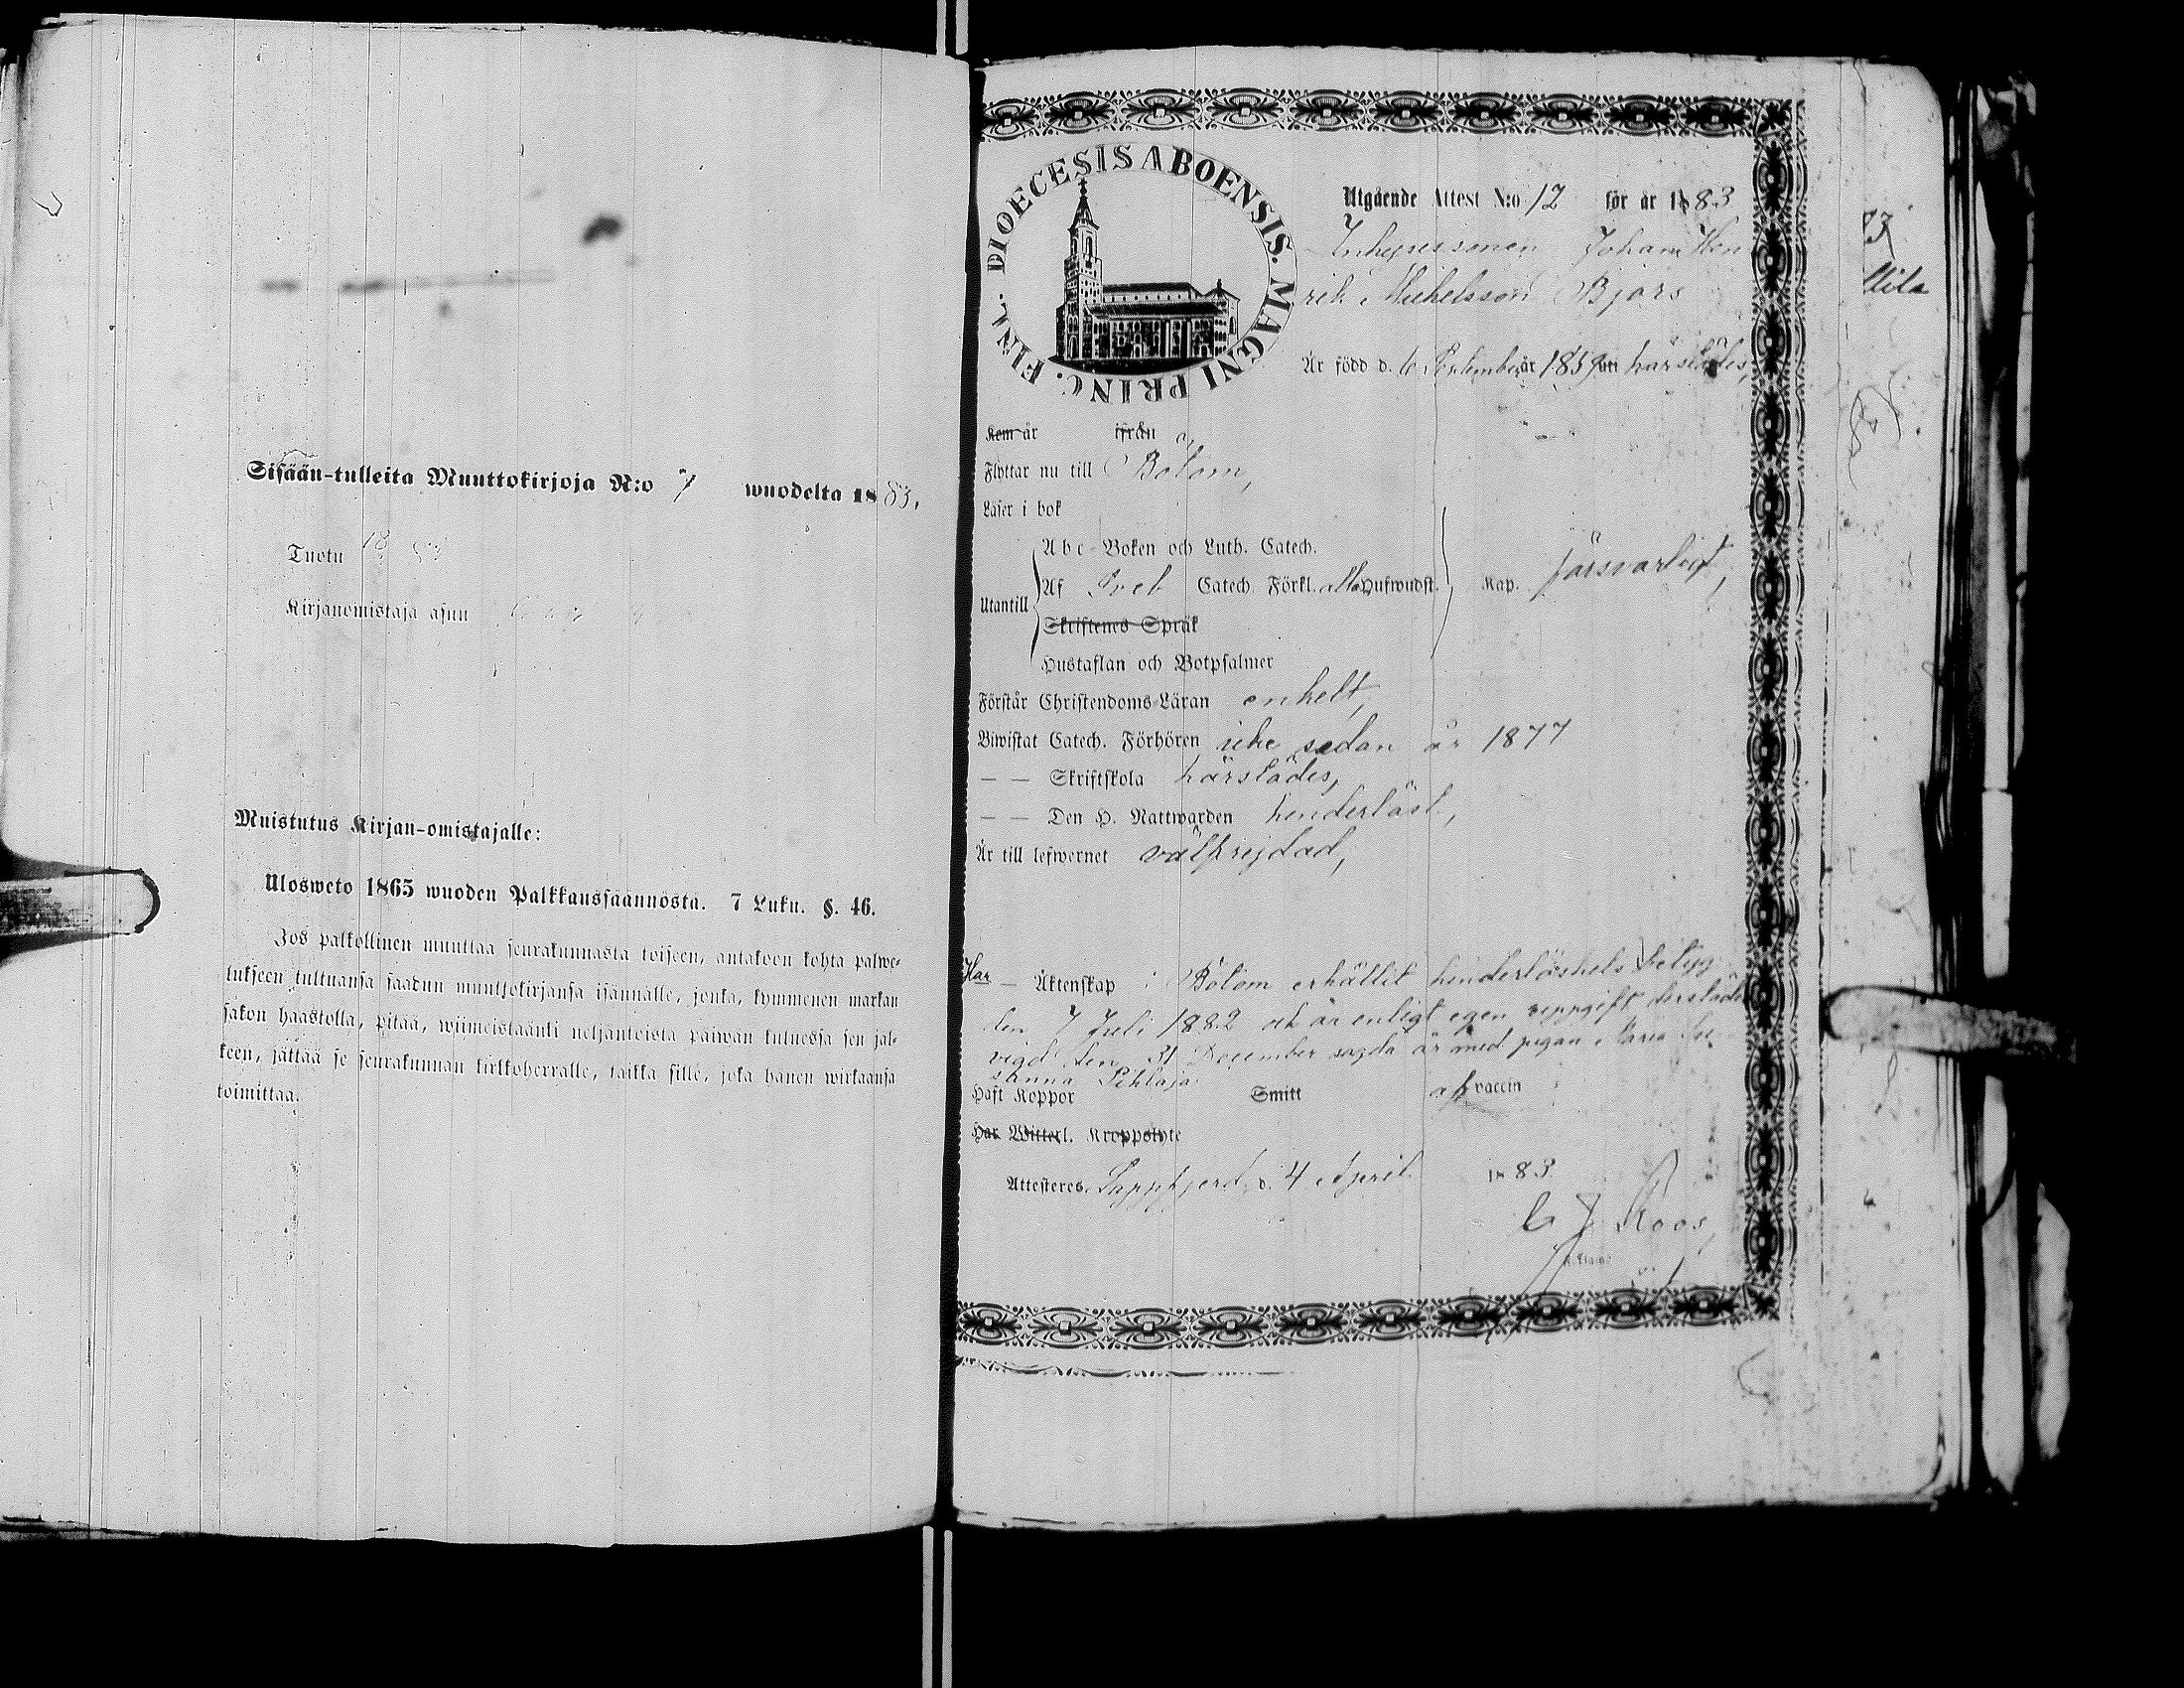 Sisään-tulleita Muuttokirjoja N:o 7 wuodelta 1883.
Tuotu 18
Kirjanomistaja asuu
Muistutus Kirjan-omistajalle:
Ulosweto 1865 wuoden Palkkaussäännöstä. 7 Luku. §. 46.
Jos palkollinen muuttaa seurakunnasta toiseen, antakoon kohta palwe-
lukseen tultuansa saadun muuttokirjansa isännälle, jonka, kymmenen markan
sakon haastolla, pitää, wiimeistäänki neljäntoista päiwän kuluessa sen jäl-
keen, jättää se seurakunnan kirkkoherralle, taikka sille, joka hänen wirkaansa
toimittaa.
DIOECESIS ABOENSIS. MAGNI PRINC. FINL.
Utgående Attest N:o 12 för år 1883
Inhysessonen Johan Hen
rik Michelsson Bjors
Är född d. 6 September år 1859 uti härstädes,
Kom år ifrån
Flyttar nu till Bötom,
Läser i bok
Abc-Boken och Luth. Catech.
Utantill Af Sveb Catech. Förkl. alla Hufwudst. Kap. försvarligt,
Skriftenes Språk
Hustaflan och Botpsalmer
Förstår Christendoms-Läran enkelt,
Biwistat Catech. Förhören icke sedan år 1877
— — Skriftskola härstädes,
— — Den H. Nattwarden hinderlöst,
Är till lefwernet välfrejdad,
Har — Äktenskap i Bötom erhållit hinderlöshets betyg
den 7 Juli 1882 och är enligt egen uppgift derstädes
vigd den 31 December sagda år med pigan Maria Su
sanna Pihlaja
Haft Koppor Smitt af vaccin
Har Witterl. Kroppslyte
Attesteres. Lappfjerd, d. 4 April 1883
C J Roos,